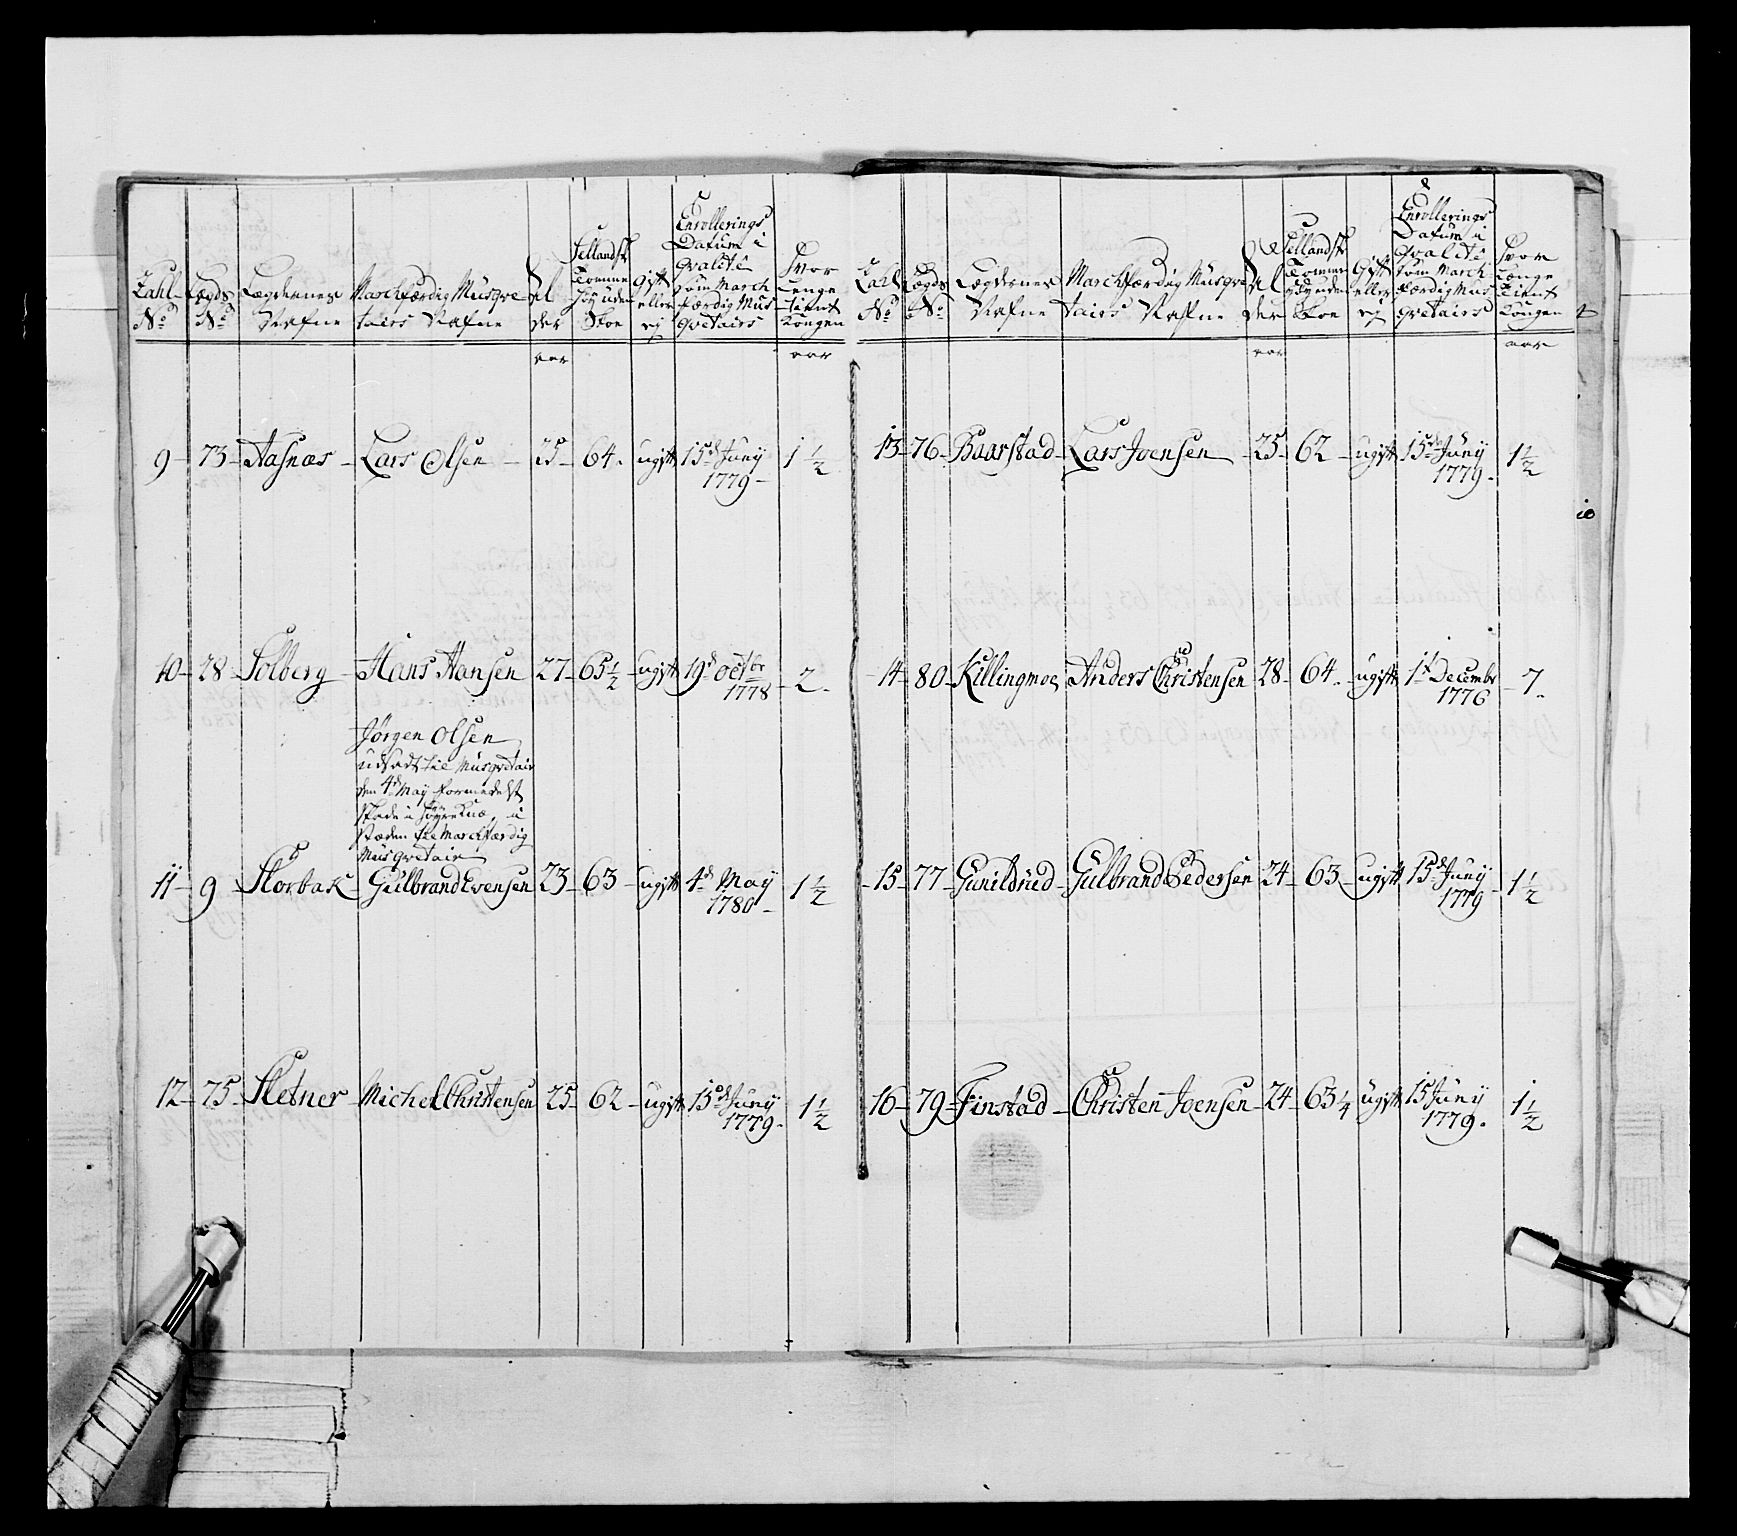 Zahl No
Lægds No
Lægdernes Nafne
Marchfærdig Musqvetairs Nafne
Alder
Sellandsk Tomme høy uden Skoe
Gift eller ey
Enrollerings Datum i Qvalité som Marchfærdig Musqvetairs
Hvor Længe tient Kongen
aar
aar
9 - 73 - Aasnæs - Lars Olsen - 25 - 64 - ugift 15de Juny 1779 - 1 1/2
10 - 78 - Solberg - Hans Hansen 27 - 65 1/2 - ugift 19d Octbr 1778 - 2 -
Jørgen Olsen
udsadt til Musqvetair
den 4d May formedelst
skade i høyre Knæ, i
stæden til Marchfærdig
Musqvetair
11 - 9 - Storbak - Gulbrand Evensen 23 - 63 - ugift 4d May 1780 - 1 1/2
12 - 75 - Sletner - Michel Christensen 25 - 62 - ugift 15de Juny 1779 - 1 1/2
Zahl No
Lægds No
Lægdernes Nafne
Marchfærdig Musqvetairs Nafne
Alder
Sellandsk Tomme høy uden Skoe
Gift eller ey
Enrollerings Datum i Qvalité som Marchfærdig Musqvetairs
Hvor Længe tient Kongen
aar
aar
13 - 76 - Baarstad - Lars Joensen - 25 - 62 - ugift 15de Juny 1779 - 1 1/2
14 - 80 - Killingmoe, Anders Christensen 28 - 64 - ugift 1t Decembr 1776 - 7 -
15 - 77 - Gunildrud - Gulbrand Pedersen 24 - 63 - ugift 15d Juny 1779 - 1 1/2
16 - 79 - Finstad - Christen Joensen - 24 - 63 1/4 ugift 15 Juny 1779 - 1 1/2